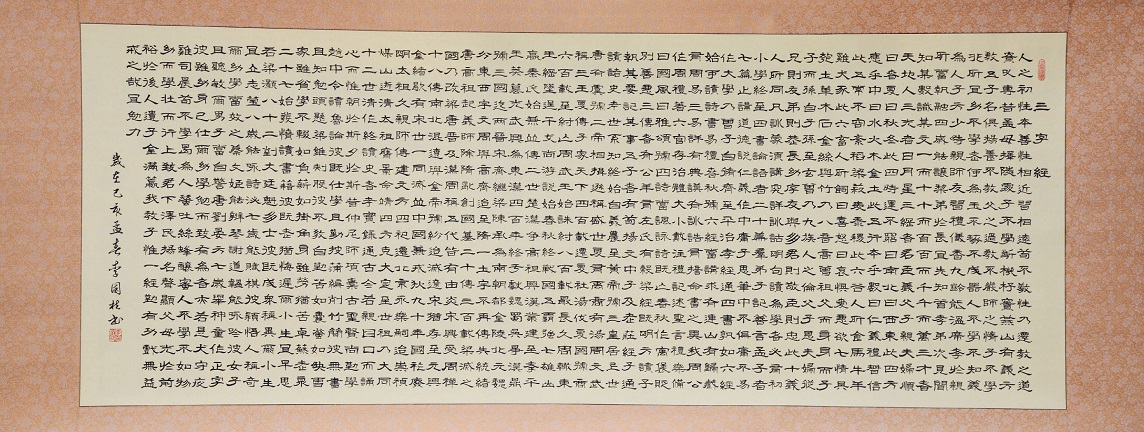 三字經
人之初性本善性相近習相遠苟不教性乃遷教之道
貴以專昔孟母擇鄰處子不學斷機杼竇燕山有義方
教五子名俱揚養不教父之過教不嚴師之惰子不學
非所宜幼不學老何爲玉不琢不成器人不學不知義
爲人子方少時親師友習禮儀香九齡能溫席孝於親
所當執融四歲能讓梨弟於長宜先知首孝弟次見聞
知某數識某文一而十十而百百而千千而萬三才者
天地人三光者日月星三綱者君臣義父子親夫婦順
曰春夏曰秋冬此四時運不窮曰南北曰西東此四方
應乎中曰水火木金土此五行本乎數曰仁義禮智信
此五常不容紊稻粱菽麥黍稷此六穀人所食馬牛羊
雞犬豕此六畜人所飼曰喜怒曰哀懼愛惡欲七情具
匏土革木石金絲與竹乃八音高曾祖父而身身而子
子而孫自子孫至玄曾乃九族人之倫父子恩夫婦從
兄則友弟則恭長幼序友與朋君則敬臣則忠此十義
人所同凡訓蒙須講究詳訓詁明句讀爲學者必有初
小學終至四書論語者二十篇群弟子記善言孟子者
七篇止講道德說仁義作中庸子思筆中不偏庸不易
作大學乃曾子自修齊至平治孝經通四書熟如六經
始可讀詩書易禮春秋號六經當講求有連山有歸藏
有周易三易詳有典謨有訓誥有誓命書之奧我周公
作周禮著六官存治體大小戴註禮記述聖言禮樂備
曰國風曰雅頌號四詩當諷詠詩既亡春秋作寓褒貶
別善惡三傳者有公羊有左氏有穀梁經既明方讀子
撮其要記其事五子者有荀揚文中子及老莊經子通
讀諸史考世系知終始自羲農至黃帝號三皇居上世
唐有虞號二帝相揖遜稱盛世夏有禹商有湯周文武
稱三王夏傳子家天下四百載遷夏社湯伐夏國號商
六百載至紂亡周武王始誅紂八百載最長久周轍東
王綱墜逞干戈尚游說始春秋終戰國五霸強七雄出
嬴秦氏始兼并傳二世楚漢爭高祖興漢業建至孝平
王莽篡光武興爲東漢四百年終於獻魏蜀吳爭漢鼎
號三國迄兩晉宋齊繼梁陳承爲南朝都金陵北元魏
分東西宇文周與高齊迨至隋一土宇不再傳失統緒
唐高祖起義師除隋亂創國基二十傳三百載梁滅之
國乃改梁唐晉及漢周稱五代皆有由炎宋興受周禪
十八傳南北混遼與金帝號紛迨滅遼宋猶存至元興
金緒歇有宋世一同滅並中國兼戎狄九十年國祚廢
明太祖久親師傳建文方四祀遷北京永樂嗣迨崇禎
煤山逝清太祖
十二世清祚終讀史者考實錄通古今若親目口而誦
心而惟朝於斯夕於斯昔仲尼師項橐古聖賢尚勤學
趙中令讀魯論彼既仕學且勤披蒲編削竹簡彼無書
且知勉頭懸梁錐刺股彼不教自勤苦如囊螢如映雪
家雖貧學不輟如負薪如掛角身雖勞猶苦卓蘇老泉
二十七始發憤讀書籍彼既老猶悔遲爾小生宜早思
若梁灝八十二對大廷魁多士彼既成衆稱異爾小生
宜立志瑩八歲能詠詩泌七歲能賦棋彼穎悟人稱奇
爾幼學當效之蔡文姬能辨琴謝道韞能詠吟彼女子
且聰敏爾男子當自警唐劉晏方七歲舉神童作正字
彼雖幼身已仕爾幼學勉而致有爲者亦若是犬守夜
雞司晨苟不學曷爲人蠶吐絲蜂釀蜜人不學不如物
幼而學壯而行上致君下澤民揚名聲顯父母光於前
裕於後人遺子金滿籯我教子惟一經勤有功戲無益
戒之哉宜勉力
歲在己亥孟春國柱書